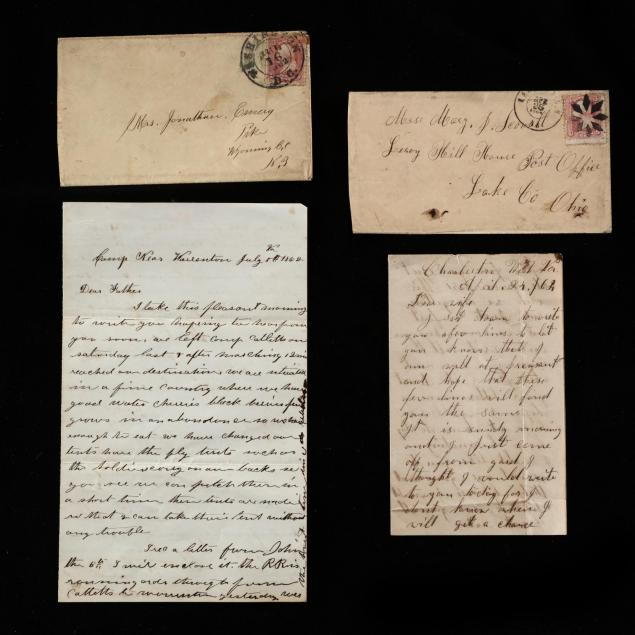 WASHINGTON
D.C.
Mrs. Jonathan Emery
Pike
Wyoming Co
N.Y
Miss Mary J.
Leroy Hill House Post Office
Lake Co
Ohio
Camp Near Warrenton July
Dear Father
I take this pleasant morning
to write you hoping to hear from
you soon, we left camp Catletts on
saturday last & after marching 12 m
reached our destination, we are situated
in a fine country where we have
good water cherris black berrins
grows in an abandance so we have
enough to eat we have changed our
tents have the fly tents such as
the soldiers carry on our backs so
you see we can pitch them in
a short time these tents are made
so that 2 can take their tent without
any trouble
I rec a letter from John
the 6th I will enclose it. the R R is
running
Catletts to yesterday was
Charleston
Dear wife
I set down to write
you a few lines to let
you know that I
am well at present
and hope that these
few lines will find
you the same
It is sunday morning
and I just come
off from gard I
thought I would write
to you today for I
dont know when I
will get a chance